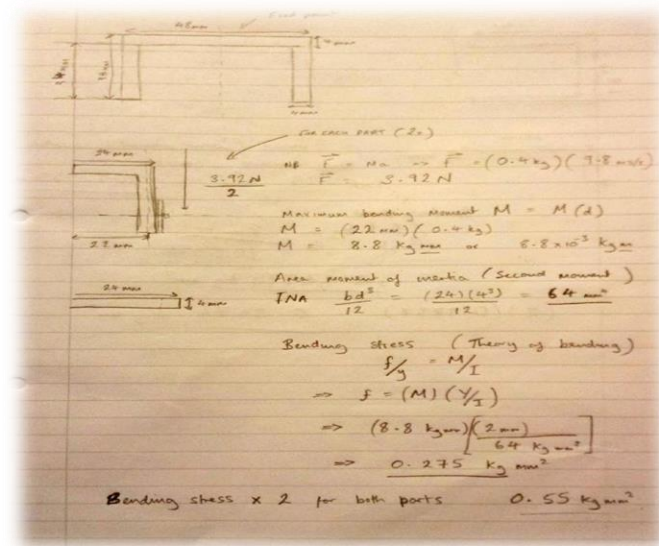 48mm
Fixed point
4mm
18mm
4mm
FOR EACH PART (2x)
24 mm
NB F = Ma => F = (0.4 kg) ( 9.8 m/s²)
3.92N
2
F = 3.92 N
Maximum bending moment M = M(d)
M = (22 mm) (0.4 kg)
22 mm
M = 8.8 kg mm or 8.8 x 10⁻³ kg m
Area moment of inertia (second moment)
24 mm
4 mm
INA bd³/12 = (24)(4³)/12 = 64 mm²
Bending stress (Theory of bending)
f/y = M/I
=> f = (M) (Y/I)
=> (8.8 kg mm) [(2 mm)/64 kg mm²]
=> 0.275 kg mm²
Bending stress x 2 for both parts 0.55 kg mm²